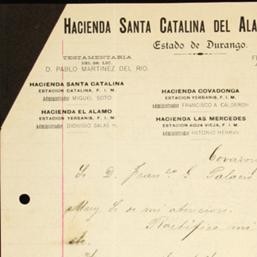 HACIENDA SANTA CATALINA DEL ALA
Estado de Durango.
TESTAMENTARIA
DEL SR. LIC.
D. PABLO MARTINEZ DEL RIO.
HACIENDA SANTA CATALINA
ESTACION CATALINA, F. I. M.
Administrador MIGUEL SOTO
HACIENDA COVADONGA
ESTACION YERBANIS, F. I. M.
Administrador FRANCISCO A. CALDERON
HACIENDA EL ALAMO
ESTACION YERBANIS, F. I. M.
Administrador DIONISIO SALAS H.
HACIENDA LAS MERCEDES
ESTACION AGUA VIEJA, F. I. M.
Administrador ANTONIO HERRAN
Covadon
Sr. D. Franco L. Palacio
Muy Sr. de mi atencion.
Ratifico mi